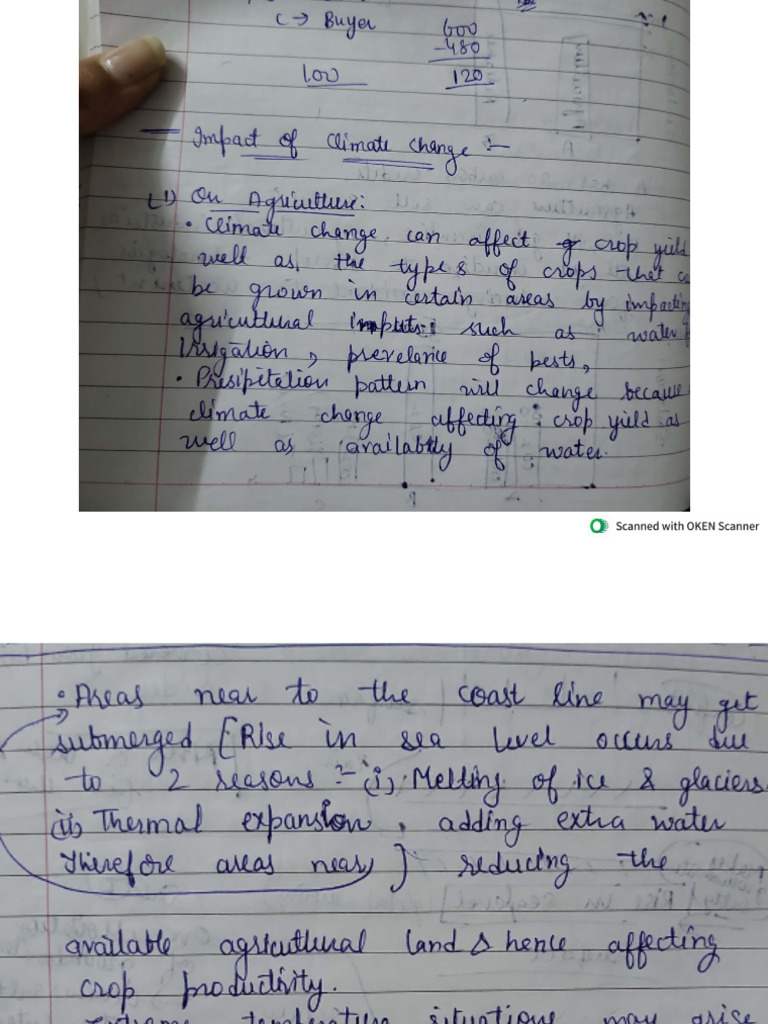 C → Buyer 600
-480
100 120
Impact of Climate Change :-
(1) On Agriculture:
• Climate change can affect crop yield
well as the types of crops that ca
be grown in certain areas by impacting
agricultural inputs such as water
Irrigation, prevelance of pests,
• Presipitation pattern will change because
climate change affecting crop yield as
well as availabtly of water.
Scanned with OKEN Scanner
• Areas near to the coast line may get
submerged [Rise in sea level occurs due
to 2 reasons :- (i) Melting of ice & glaciers
(ii) Thermal expansion, adding extra water
Therefore areas near] reducing the
available agricultural land & hence affecting
crop productivity.
extreme temperature situations may arise